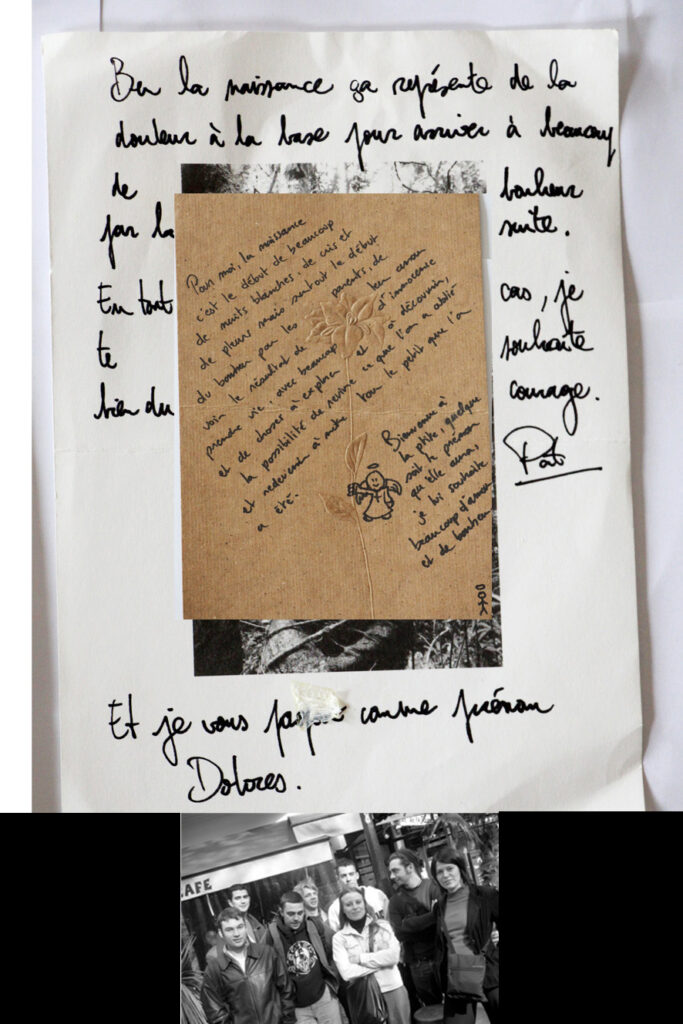 Ben la naissance ça représente de la
douleur à la base pour arriver à beaucoup
de bonheur
par la suite.
En tout cas, je
te souhaite
bien du courage.
Pat
Pour moi, la naissance
c'est le début de beaucoup
de nuits blanches, de cris et
de pleurs mais surtout le début
du bonheur par les parents, de
voir le résultat de leur amour
prendre vie, avec beaucoup d'innocence
et de choses à explorer et à découvrir,
la possibilité de revivre ce que l'on a oublié
et redevenir à notre tour le petit que l'on
a été.
Bienvenue à
la ptite, quelque
soit le prénom
qu'elle aura,
je lui souhaite
beaucoup d'amour
et de bonheur
Et je vous comme prénom
Dolores.
CAFE